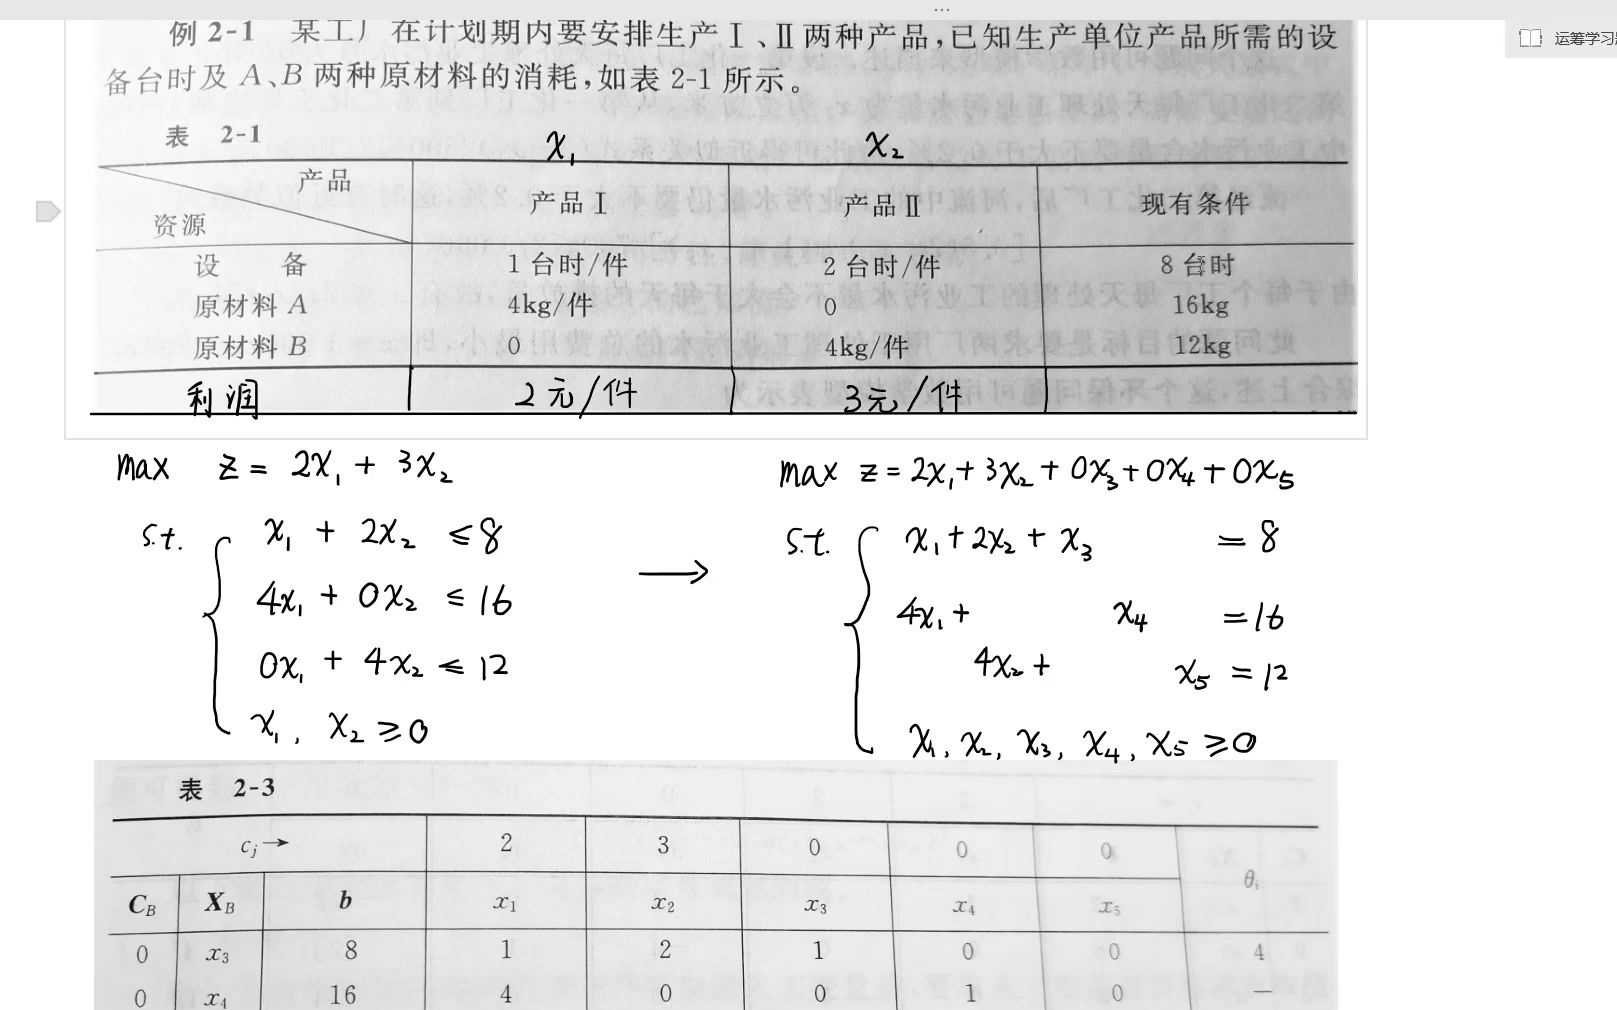 运筹学习题
例 2-1 某工厂在计划期内要安排生产Ⅰ、Ⅱ两种产品,已知生产单位产品所需的设
备台时及 A、B 两种原材料的消耗,如表 2-1 所示。
表 2-1
x₁ x₂
资源 产品 产品Ⅰ 产品Ⅱ 现有条件
设 备 1 台时/件 2 台时/件 8 台时
原材料 A 4kg/件 0 16kg
原材料 B 0 4kg/件 12kg
利润 2元/件 3元/件
max z = 2x₁ + 3x₂
s.t. x₁ + 2x₂ ≤ 8
4x₁ + 0x₂ ≤ 16
0x₁ + 4x₂ ≤ 12
x₁, x₂ ≥ 0
→
max z = 2x₁ + 3x₂ + 0x₃ + 0x₄ + 0x₅
s.t. x₁ + 2x₂ + x₃ = 8
4x₁ + x₄ = 16
4x₂ + x₅ = 12
x₁, x₂, x₃, x₄, x₅ ≥ 0
表 2-3
cⱼ→ 2 3 0 0 0 θᵢ
C_B X_B b x₁ x₂ x₃ x₄ x₅
0 x₃ 8 1 2 1 0 0 4
0 x₄ 16 4 0 0 1 0 —